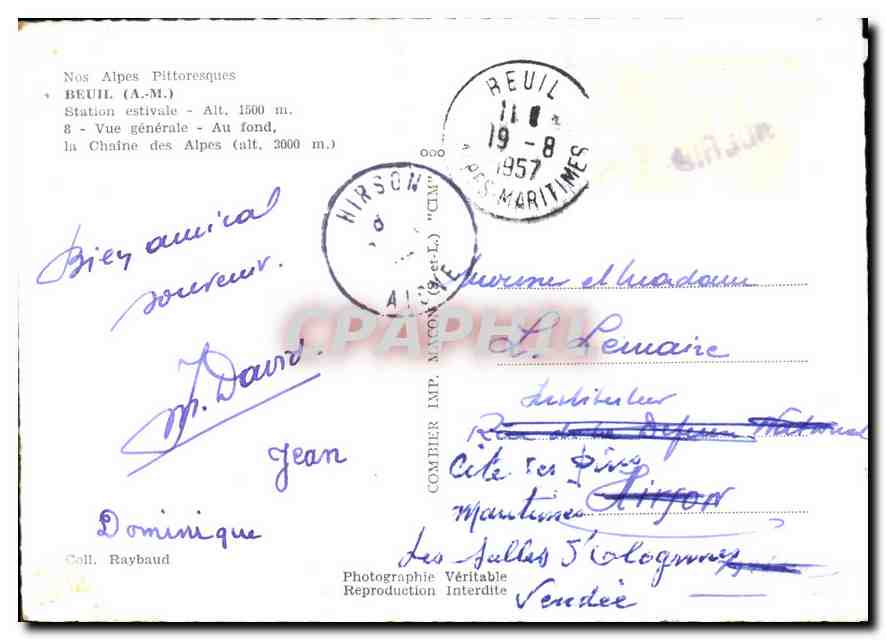 Nos Alpes Pittoresques
BEUIL (A.-M.)
Station estivale - Alt. 1500 m.
8 - Vue générale - Au fond,
la Chaîne des Alpes (alt. 3000 m.)
BEUIL
11
19 - 8
1957
ALPES-MARITIMES
HIRSON
AISNE
Bien amical
souvenir.
M. David.
Jean
Dominique
Coll. Raybaud
COMBIER IMP. MACON (S.-et-L.) "CIM"
Photographie Véritable
Reproduction Interdite
Monsieur et Madame
L. Lemaire
Instituteur
Rue de la Défense Nationale
Cité des Pins
Maritimes Hirson
Les Salles d'Olonnes
Vendée
CPAPHIL